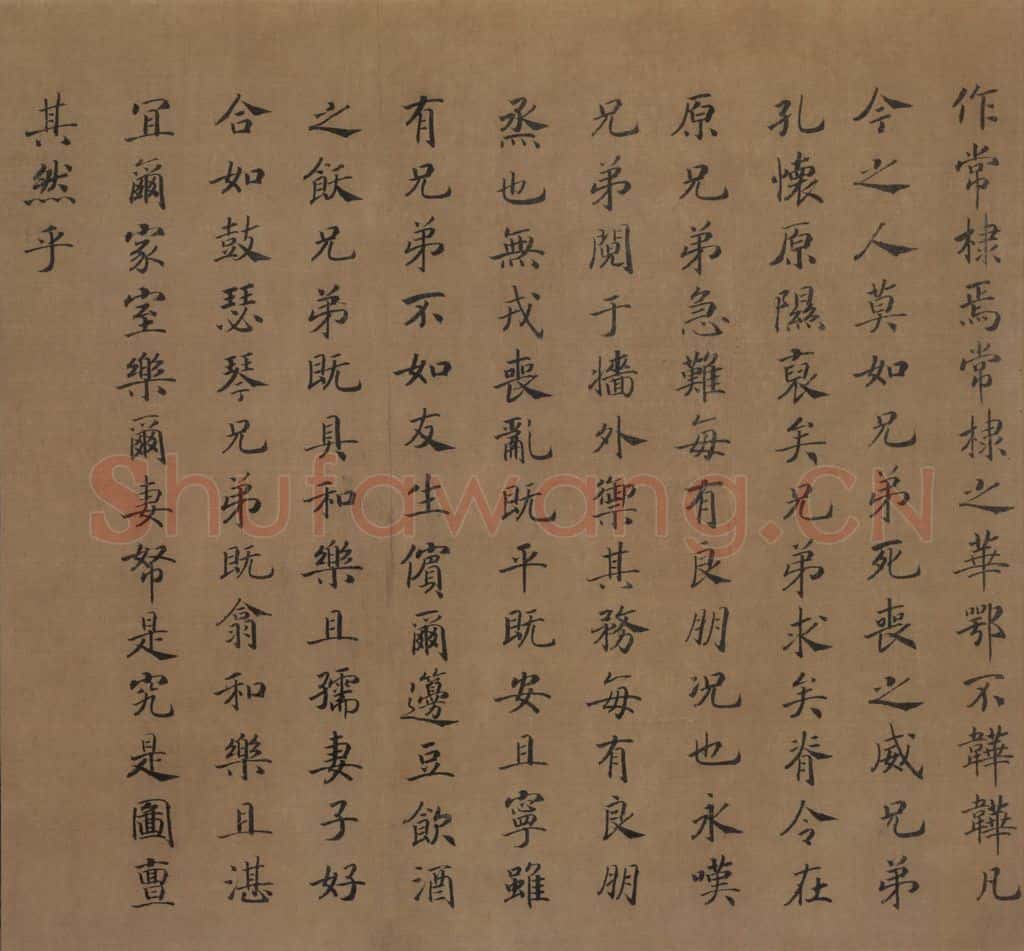 作常棣焉常棣之華鄂不韡韡凡
今之人莫如兄弟死喪之威兄弟
孔懷原隰裒矣兄弟求矣脊令在
原兄弟急難每有良朋况也永嘆
兄弟鬩于牆外禦其務每有良朋
烝也無戎喪亂既平既安且寧雖
有兄弟不如友生儐爾籩豆飲酒
之飫兄弟既具和樂且孺妻子好
合如鼓瑟琴兄弟既翕和樂且湛
宜爾家室樂爾妻帑是究是圖亶
其然乎
Shufawang.CN